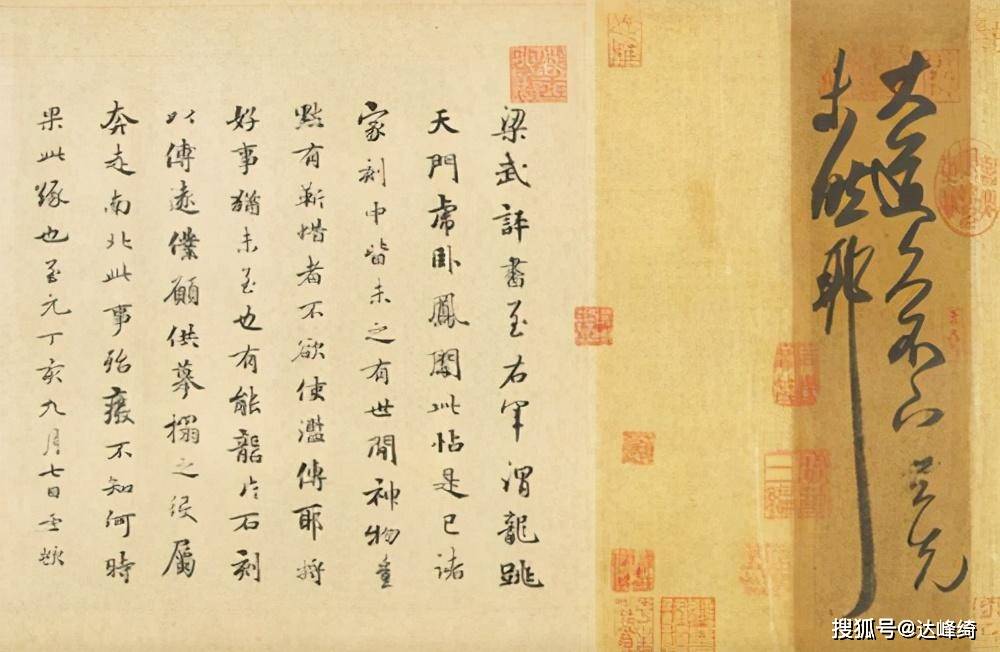 大道久不下与先
未然耶
梁武評書至右軍謂龍跳
天門虎卧鳳閣此帖是已諸
家刻中皆未之有世間神物豈
黙有靳惜者不欲使濫傳耶將
好事猶未至也有能礱片石刻
以傳遠僕願供摹搨之役屬
奔走南北此事殆廢不知何時
果此緣也至元丁亥九月七日重題
搜狐号@达峰绮